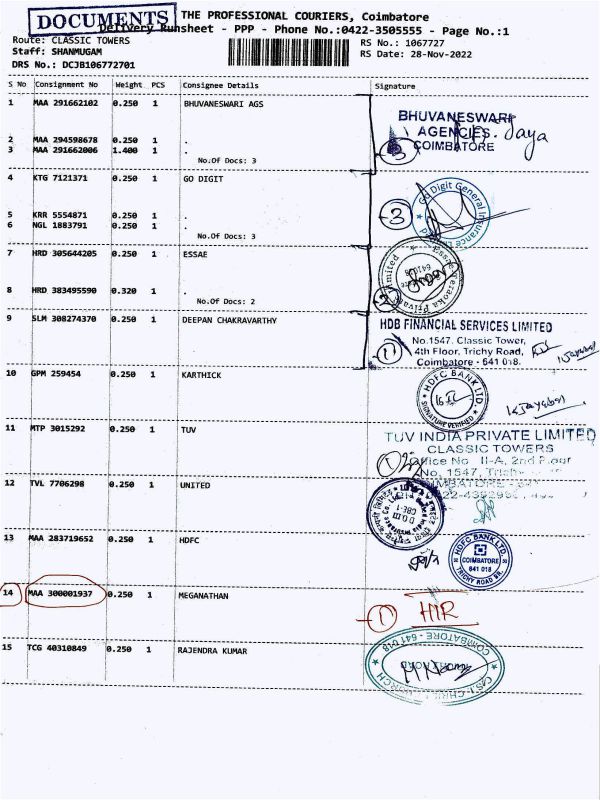 DOCUMENTS
THE PROFESSIONAL COURIERS, Coimbatore
Delivery Runsheet - PPP - Phone No.:0422-3505555 - Page No.:1
Route: CLASSIC TOWERS
RS No.: 1067727
Staff: SHANMUGAM
RS Date: 28-Nov-2022
DRS No.: DCJB106772701
S No Consignment No Weight PCS Consignee Details Signature
1 MAA 291662102 0.250 1 BHUVANESWARI AGS
BHUVANESWARI
AGENCIES. Jaya
COIMBATORE
2 MAA 294598678 0.250 1 .
3 MAA 291662006 1.400 1 .
3
No.Of Docs: 3
4 KTG 7121371 0.250 1 GO DIGIT
Go Digit General Insurance
3
5 KRR 5554871 0.250 1 .
6 NGL 1883791 0.250 1 .
No.Of Docs: 3
7 HRD 305644205 0.250 1 ESSAE
8 HRD 383495590 0.320 1 .
No.Of Docs: 2
9 SLM 308274370 0.250 1 DEEPAN CHAKRAVARTHY
HDB FINANCIAL SERVICES LIMITED
No.1547, Classic Tower,
4th Floor, Trichy Road,
Coimbatore - 641 018.
1
10 GPM 259454 0.250 1 KARTHICK
HDFC BANK LTD
SIGNATURE VERIFIED
11 MTP 3015292 0.250 1 TUV
TUV INDIA PRIVATE LIMITED
CLASSIC TOWERS
Office No II-A, 2nd Floor
No. 1547,
1
12 TVL 7706298 0.250 1 UNITED
13 MAA 283719652 0.250 1 HDFC
HDFC BANK LTD
COIMBATORE
641 018
TRICHY ROAD BR.
14 MAA 300001937 0.250 1 MEGANATHAN
1
15 TCG 40310849 0.250 1 RAJENDRA KUMAR
COIMBATORE - 641 018